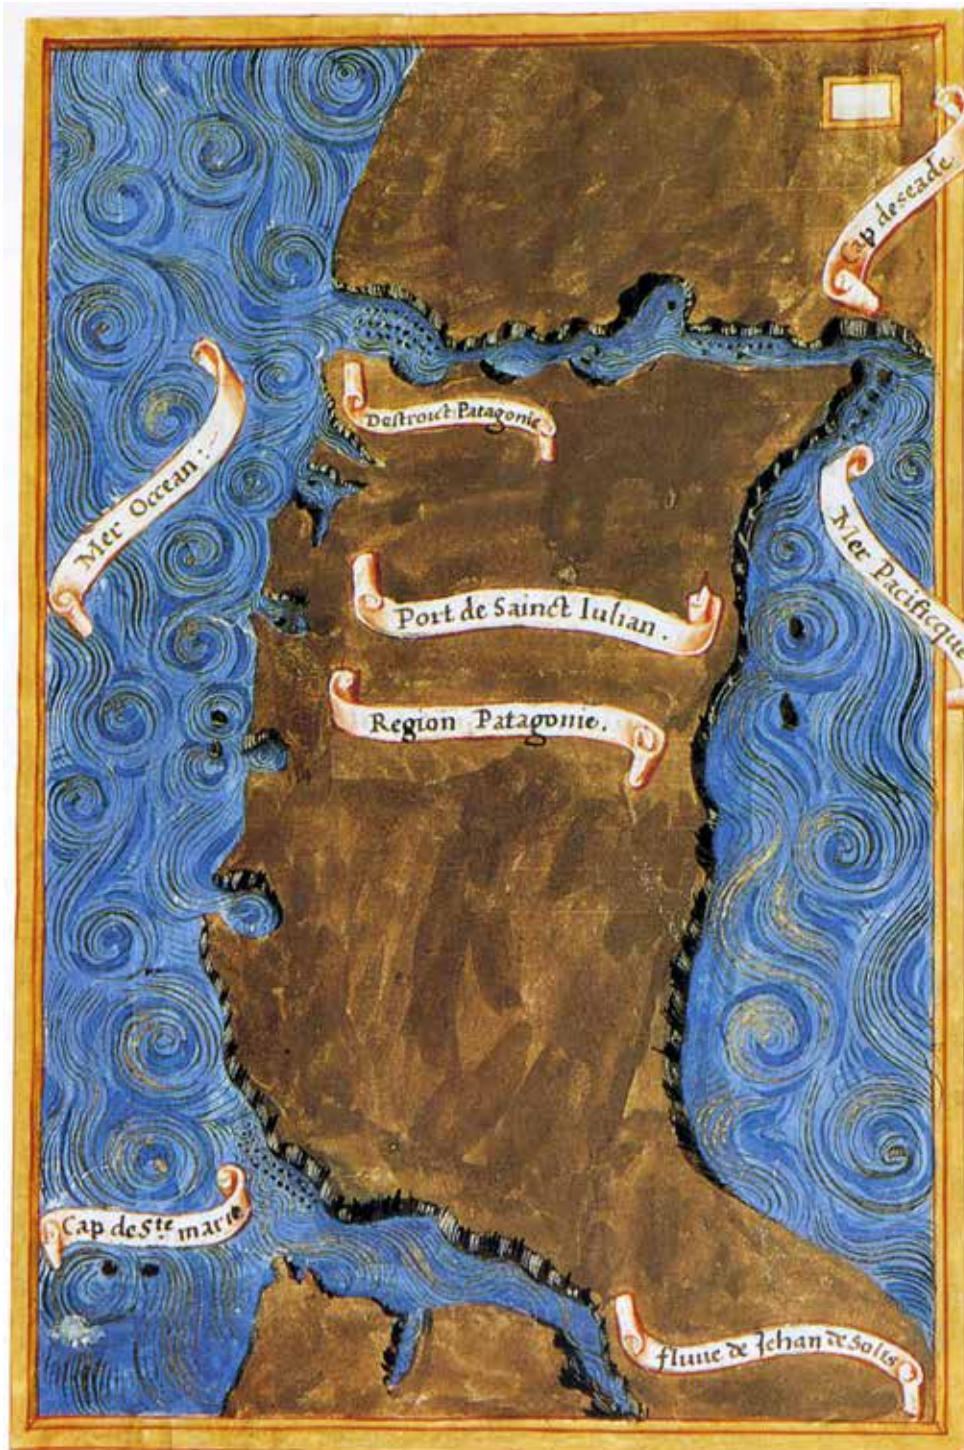 Cap deseade
Destroict Patagonie
Mer Occean :.
Mer Pacificque
Port de Sainct Iulian .
Region Patagonie.
Cap de Ste marie
fluue de Jehan de Solis